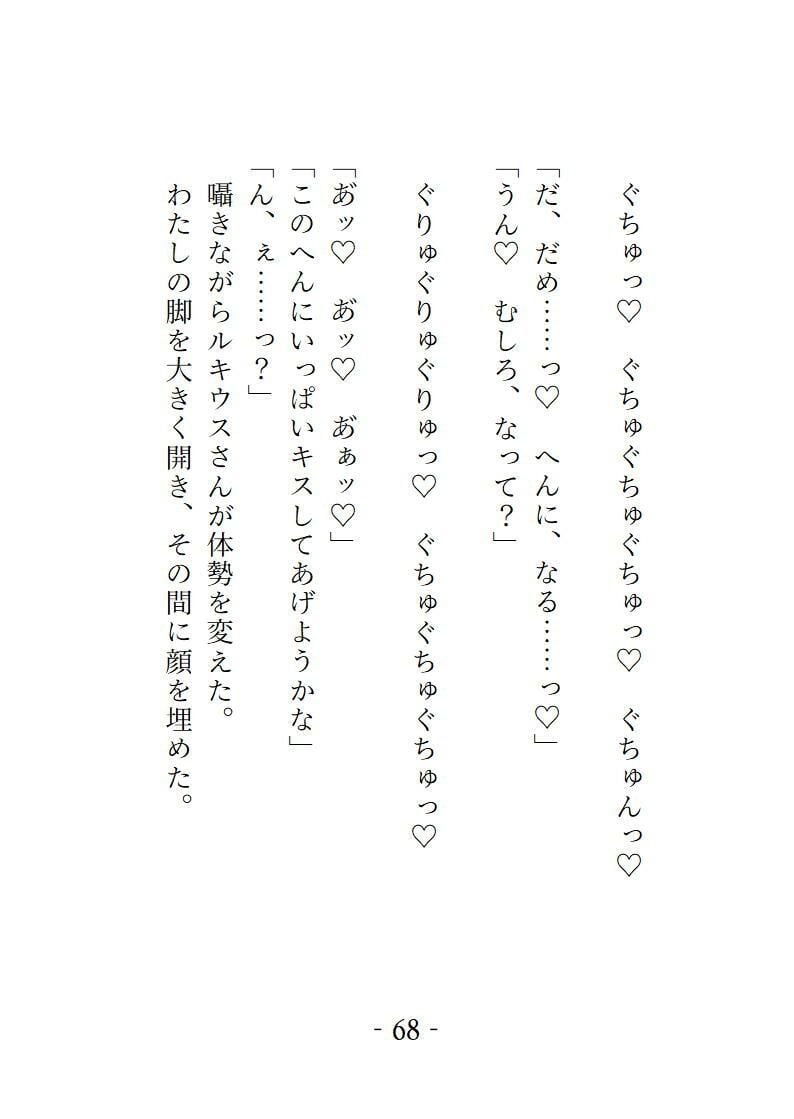 ぐちゅっ♡　ぐちゅぐちゅぐちゅっ♡　ぐちゅんっ♡
「だ、だめ……っ♡　へんに、なる……っ♡」
「うん♡　むしろ、なって？」
ぐりゅぐりゅぐりゅっ♡　ぐちゅぐちゅぐちゅっ♡
「あ゙ッ♡　あ゙ッ♡　あ゙ぁッ♡」
「このへんにいっぱいキスしてあげようかな」
「ん、ぇ……っ？」
囁きながらルキウスさんが体勢を変えた。
わたしの脚を大きく開き、その間に顔を埋めた。
- 68 -